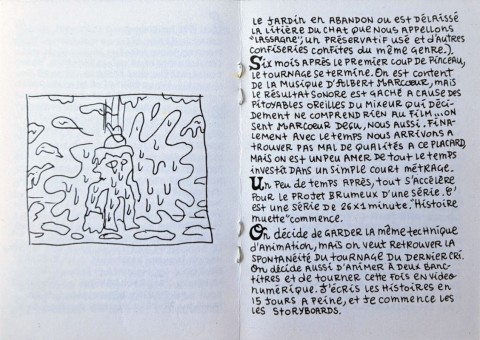 Le jardin en abandon ou est délaissé
la litière du chat que nous appellons
"Lassagne", un préservatif usé et d'autres
confiseries confites du même genre.)
Six mois après le premier coup de pinceau,
le tournage se termine. On est content
de la musique d'Albert Marcoeur, mais
le résultat sonore est gaché a cause des
pitoyables oreilles du mixeur qui déci-
dement ne comprend rien au film... on
sent Marcoeur deçu, nous aussi. Fina-
lement avec le temps nous arrivons a
trouver pas mal de qualités a ce placard,
mais on est un peu amer de tout le temps
investit dans un simple court métrage.
Un peu de temps après, tout s'accélère
pour le projet brumeux d'une série. C'
est une série de 26x1 minute. "Histoire
muette" commence.
On décide de garder la même technique
d'animation, mais on veut retrouver la
spontanéité du tournage du dernier cri.
On décide aussi d'animer à deux banc-
titres et de tourner cette fois en video
numérique. J'écris les histoires en
15 jours a peine, et je commence les
les storyboards.